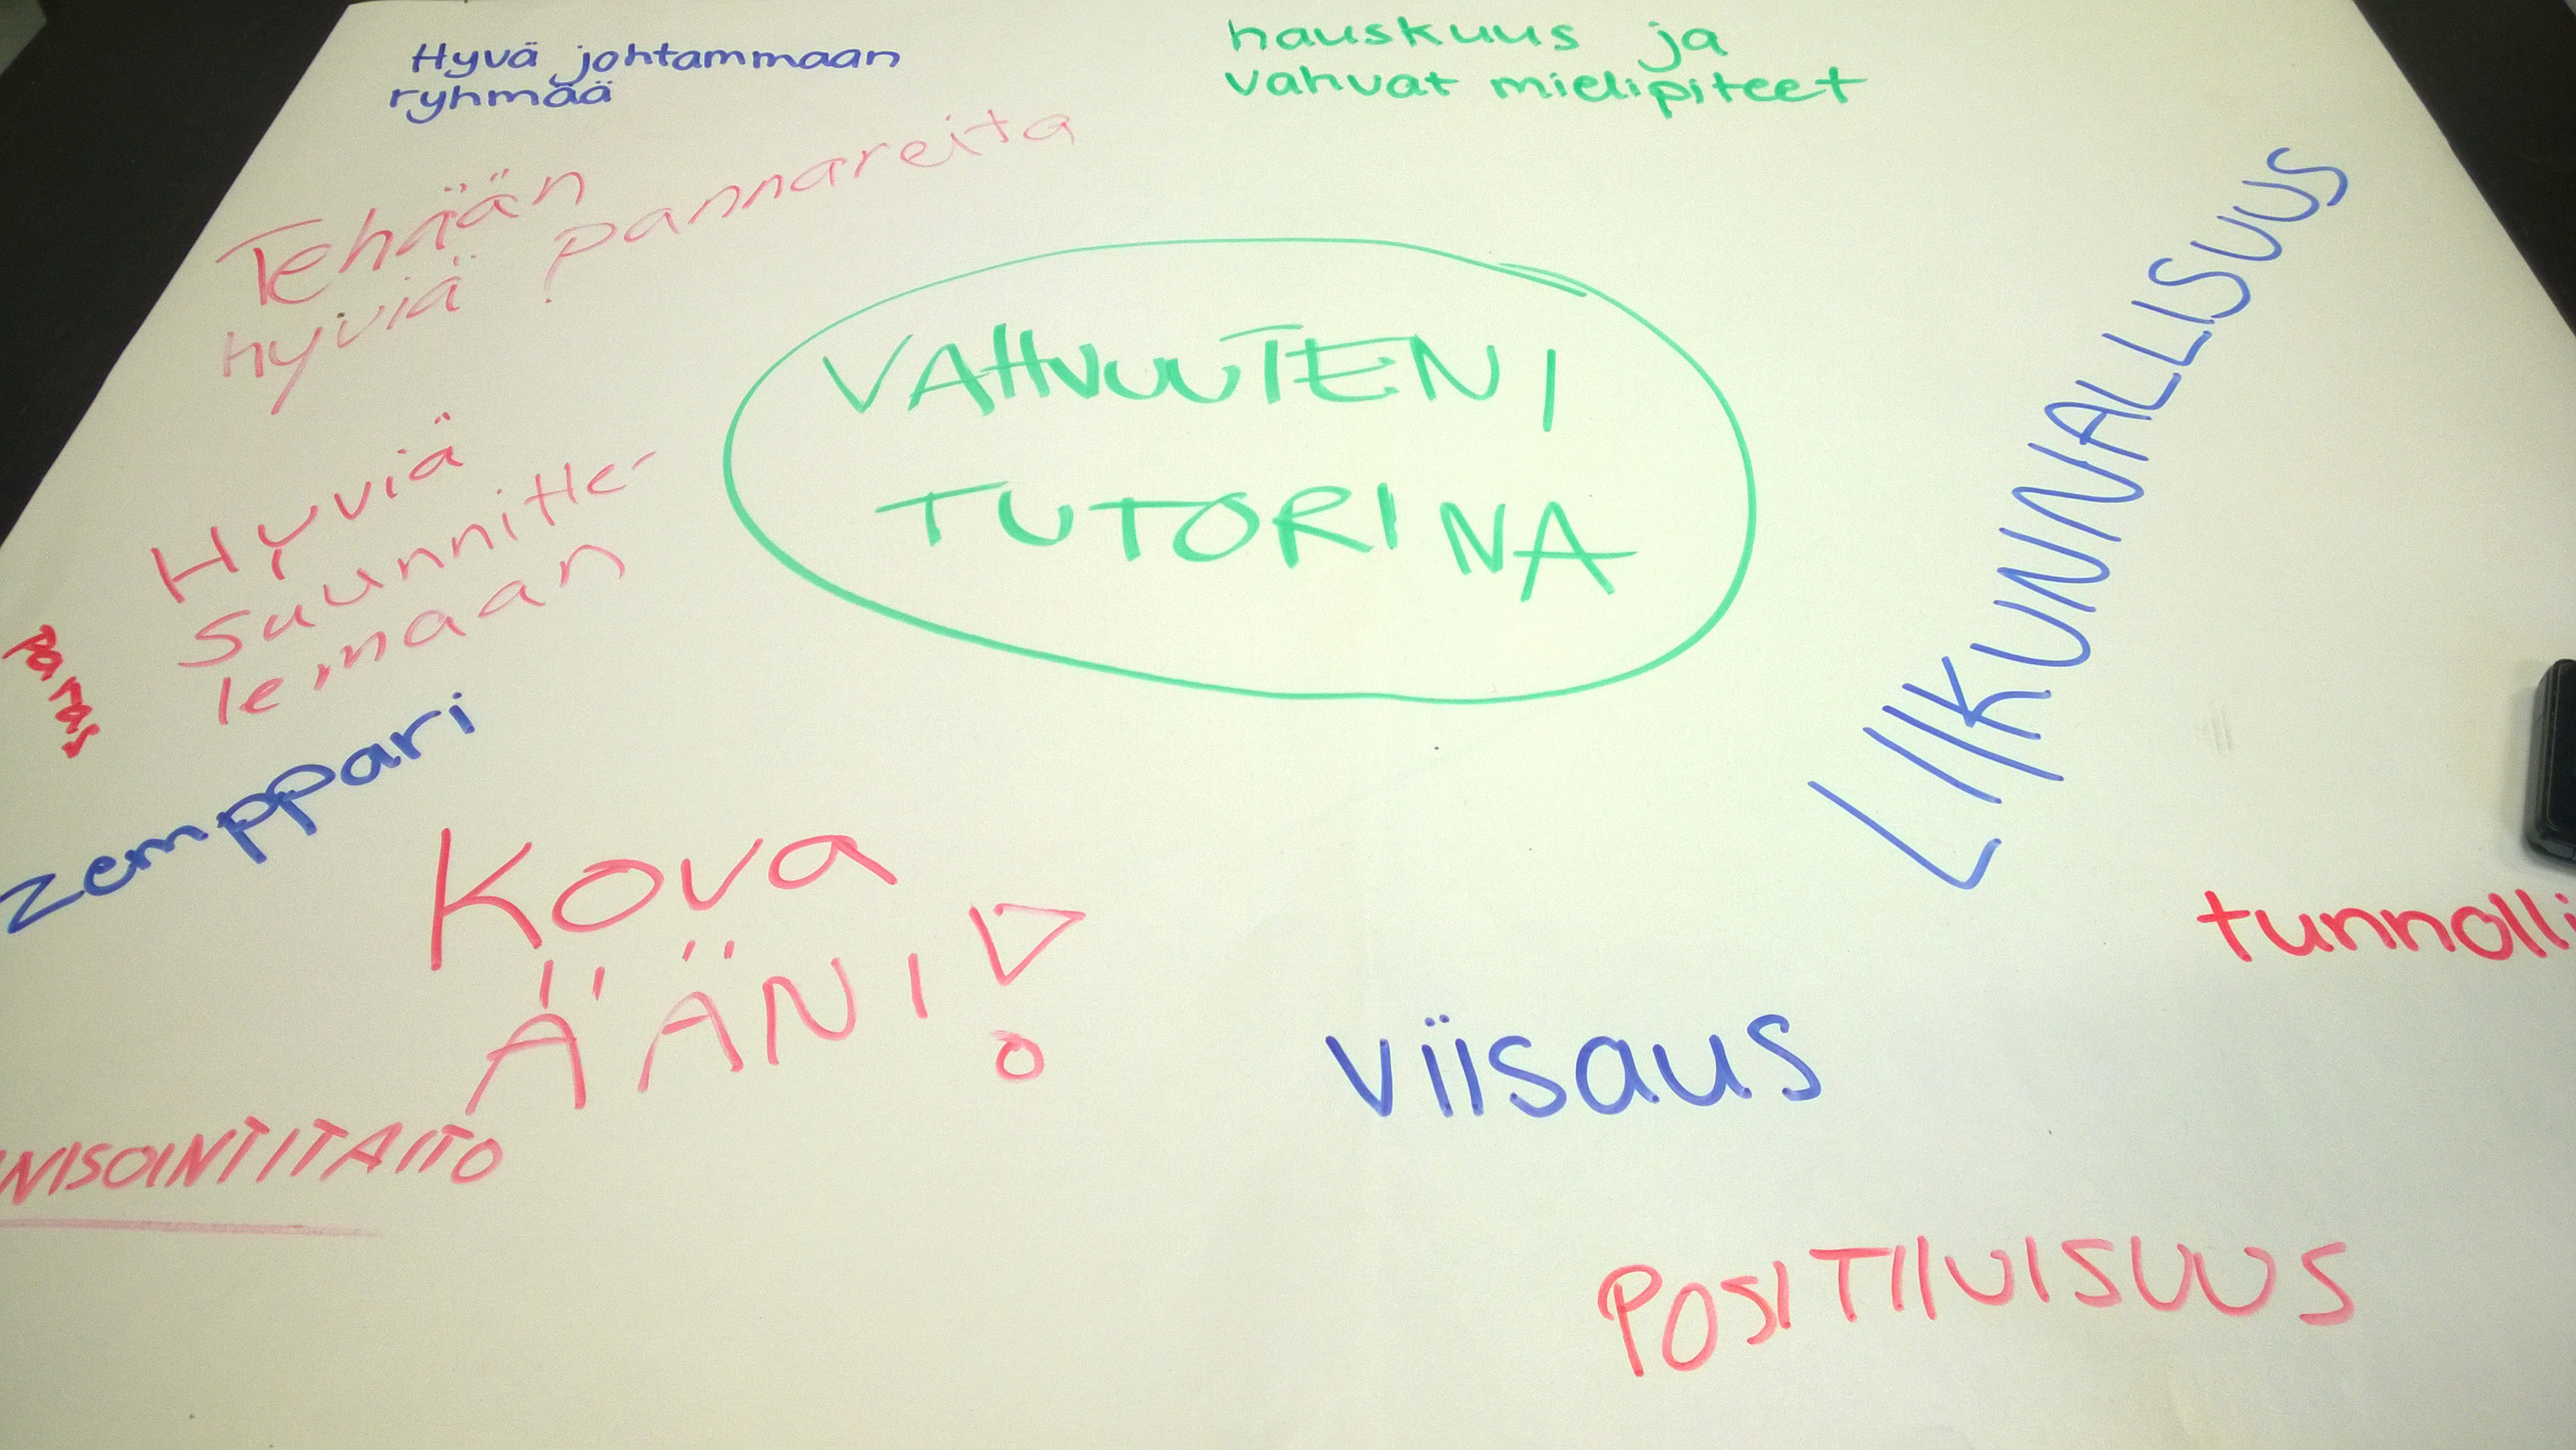 Hyvä johtammaan
ryhmää
hauskuus ja
vahvat mielipiteet
Tehään
hyviä pannareita
VAHVUUTENI
TUTORINA
LIIKUNNALLISUUS
Hyviä
suunnitte-
lemaan
paras
zemppari
Kova
ÄÄNI!
tunnolli
viisaus
NISOINTITAITO
POSITIIVISUUS